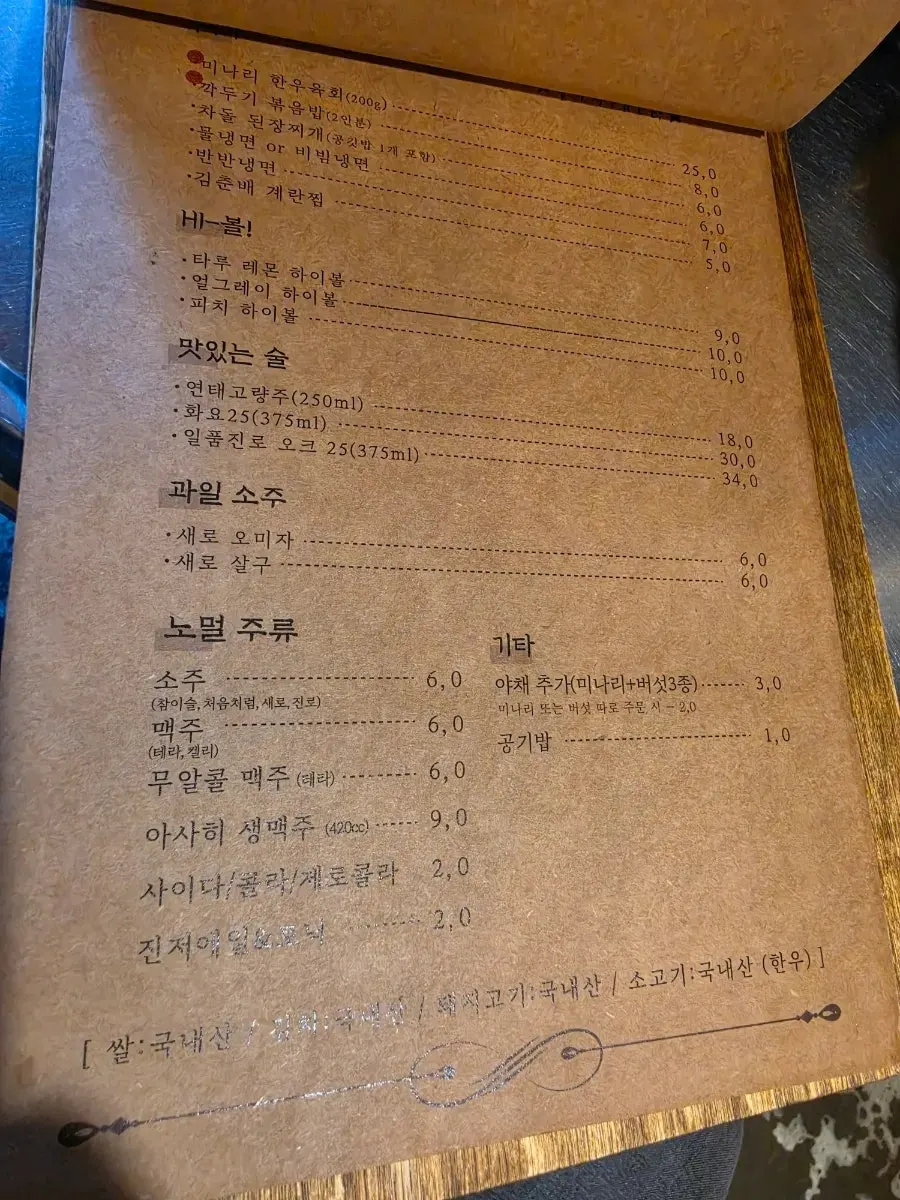 미나리 한우육회(200g) 25,0
깍두기 볶음밥(2인분) 8,0
차돌 된장찌개(공깃밥 1개 포함) 6,0
물냉면 or 비빔냉면 6,0
반반냉면 7,0
김춘배 계란찜 5,0
하-볼!
타루 레몬 하이볼 9,0
얼그레이 하이볼 10,0
파치 하이볼 10,0
맛있는 술
연태고량주(250ml) 18,0
화요25(375ml) 30,0
일품진로 오크 25(375ml) 34,0
과일 소주
새로 오미자 6,0
새로 살구 6,0
노멀 주류
소주 6,0
(참이슬,처음처럼,새로,진로)
맥주 6,0
(테라,켈리)
무알콜 맥주 (테라) 6,0
아사히 생맥주 (420cc) 9,0
사이다/콜라/제로콜라 2,0
진저에일&토닉 2,0
기타
야채 추가(미나리+버섯3종) 3,0
미나리 또는 버섯 따로 주문 시 - 2,0
공기밥 1,0
[ 쌀:국내산 / 김치:국내산 / 돼지고기:국내산 / 소고기:국내산 (한우) ]